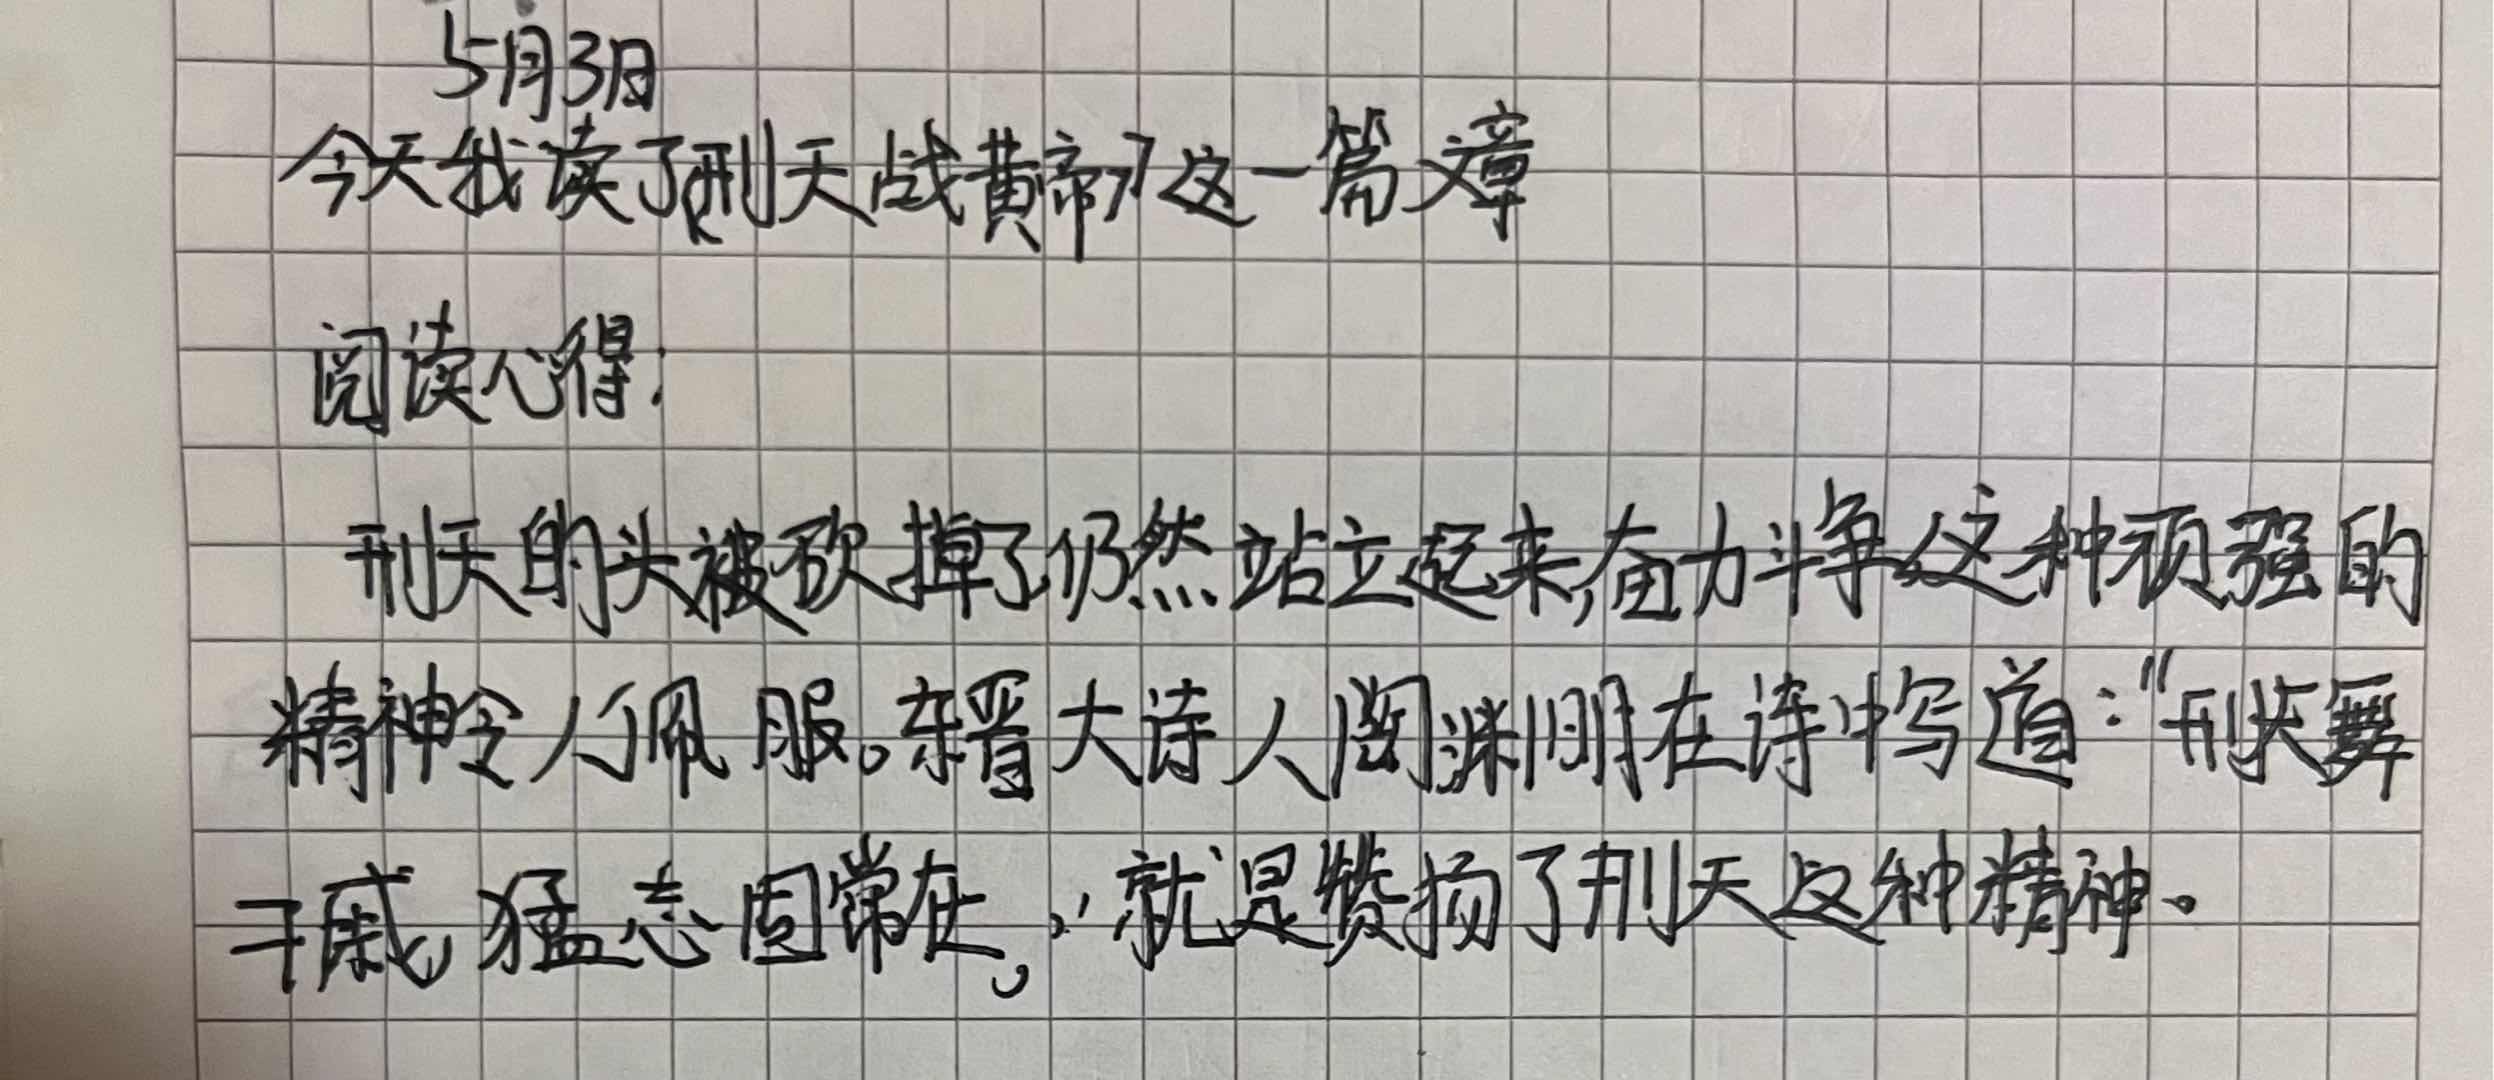 5月3日
今天我读了《刑天战黄帝》这一篇文章
阅读心得：
刑天的头被砍掉了仍然站立起来,奋力斗争这种顽强的
精神令人佩服。东晋大诗人陶渊明在诗中写道："刑天舞
干戚,猛志固常在。"就是赞扬了刑天这种精神。